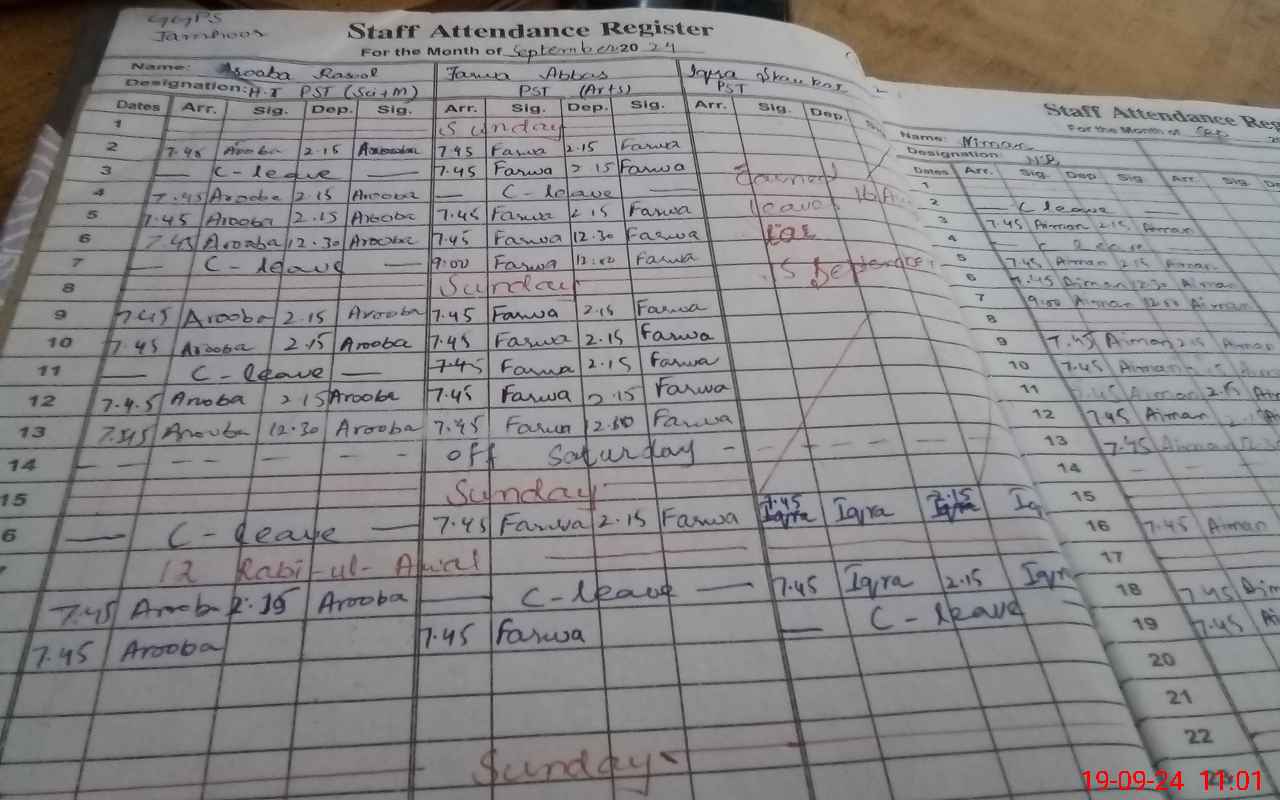 GGPS
Staff Attendance Register
For the Month of September 2024
Name: Arooba Rasool Farwa Abbas Iqra
Designation: PST (Sci+M) PST (Arts) PST
Dates Arr. Sig. Dep. Sig. Arr. Sig. Dep. Sig. Arr. Sig. Dep.
1 Sunday
2 7.45 Arooba 2.15 Arooba 7.45 Farwa 2.15 Farwa
3 — C-leave — 7.45 Farwa 2.15 Farwa
4 7.45 Arooba 2.15 Arooba — C-leave —
5 7.45 Arooba 2.15 Arooba 7.45 Farwa 2.15 Farwa leave
6 7.45 Arooba 12.30 Arooba 7.45 Farwa 12.30 Farwa
7 — C-leave — 9:00 Farwa 12:00 Farwa 15 September
8 Sunday
9 7.45 Arooba 2.15 Arooba 7.45 Farwa 2.15 Farwa
10 7.45 Arooba 2.15 Arooba 7.45 Farwa 2.15 Farwa
11 — C-leave — 7.45 Farwa 2.15 Farwa
12 7.4.5 Arooba 2.15 Arooba 7.45 Farwa 2.15 Farwa
13 7.45 Arooba 12.30 Arooba 7.45 Farwa 12.30 Farwa
14 - - - - - - off Saturday - - - - -
15 Sunday
6 — C-leave — 7.45 Farwa 2.15 Farwa 7.45 Iqra 2.15 Iq
12 Rabi-ul-Awal
7.45 Arooba 2.15 Arooba — C-leave — 7.45 Iqra 2.15 Iqra
7.45 Arooba 7.45 Farwa — C-leave
Sunday
Staff Attendance Reg
For the Month of Sep
Name: Aiman
Designation:
Dates Arr. Sig. Dep Sig Arr. Sig. Dep
1
2 — C leave —
3 7.45 Aiman 2.15 Aiman
4 leave
5 7.45 Aiman 2.15 Aiman
6 7.45 Aiman 12.30 Aiman
7 9:00 Aiman 12:00 Aiman
8
9 7.45 Aiman 2.15 Aiman
10 7.45 Aiman
11 7.45 Aiman 2.15
12 7.45 Aiman
13 7.45 Aiman
14 - -
15
16 7.45 Aiman
17
18 7.45 Aim
19 7.45 Ai
20
21
22
19-09-24 11:01